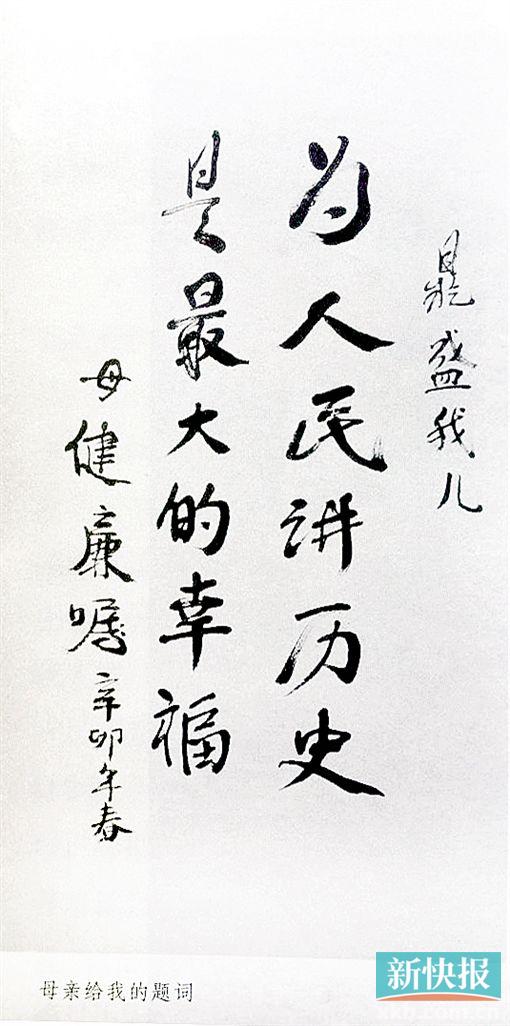 盛我儿
为人民讲历史
是最大的幸福
母健廉嘱 辛卯年春
母亲给我的题词
新快报
xkb.com.cn